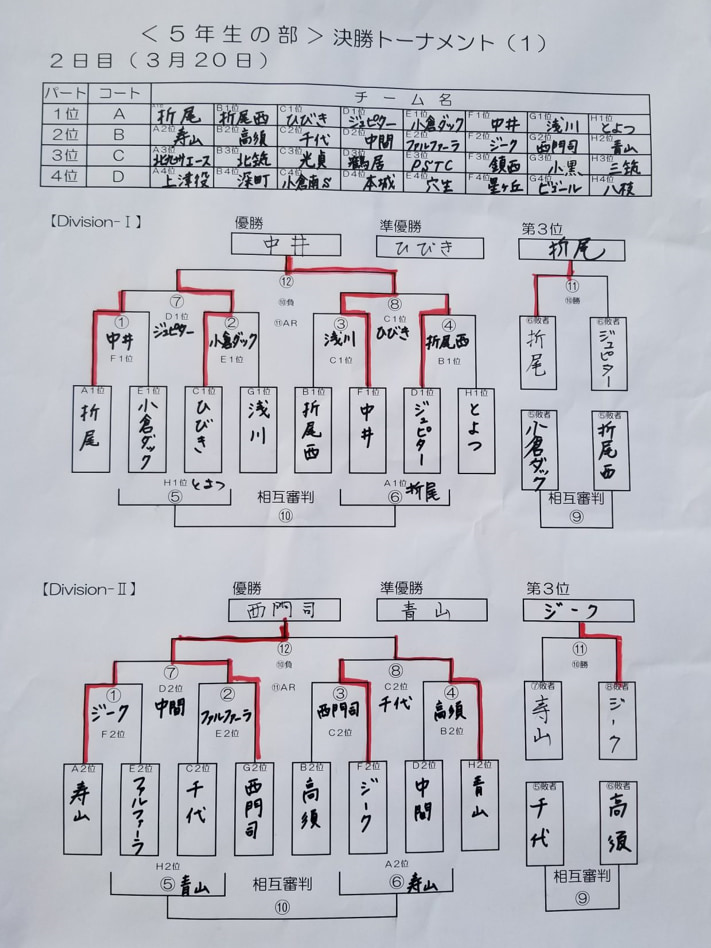 ＜５年生の部＞決勝トーナメント（１）
２日目（３月２０日）
パート コート チーム名
1位 A 折尾 B1位 折尾西 C1位 ひびき D1位 ジュピター E1位 小倉ダック F1位 中井 G1位 浅川 H1位 とよつ
2位 B A2位 寿山 B2位 高須 C2位 千代 D2位 中間 E2位 ファルファーラ F2位 ジーク G2位 西門司 H2位 青山
3位 C A3位 北九州エース B3位 北筑 C3位 光貞 D3位 鶴居 E3位 PSTC F3位 鎮西 G3位 小黒 H3位 三筑
4位 D A4位 上津役 B4位 深町 C4位 小倉南S D4位 本城 E4位 穴生 F4位 星ヶ丘 G4位 ビゴール H4位 八枝
【Division-Ⅰ】 優勝 準優勝 第３位
中井 ひびき 折尾
⑫ ⑪
⑦ ⑩負 ⑧ ⑩勝
① D1位 ジュピター ② ⑪AR ③ C1位 ひびき ④ ⑥敗者 ⑥敗者
中井 小倉ダック 浅川 折尾西 折尾 ジュピター
F1位 E1位 C1位 B1位
A1位 E1位 C1位 G1位 B1位 F1位 D1位 H1位 ⑤敗者 ⑤敗者
折尾 小倉ダック ひびき 浅川 折尾西 中井 ジュピター とよつ 小倉ダック 折尾西
H1位 とよつ A1位 折尾
⑤ 相互審判 ⑥ 相互審判
⑩ ⑨
【Division-Ⅱ】 優勝 準優勝 第３位
西門司 青山 ジーク
⑫ ⑪
⑦ ⑩負 ⑧ ⑩勝
① D2位 中間 ② ⑪AR ③ C2位 千代 ④ ⑦敗者 ⑧敗者
ジーク ファルファーラ 西門司 高須 寿山 ジーク
F2位 E2位 C2位 B2位
A2位 E2位 C2位 G2位 B2位 F2位 D2位 H2位 ⑤敗者 ⑥敗者
寿山 ファルファーラ 千代 西門司 高須 ジーク 中間 青山 千代 高須
H2位 A2位
⑤ 青山 相互審判 ⑥ 寿山 相互審判
⑩ ⑨